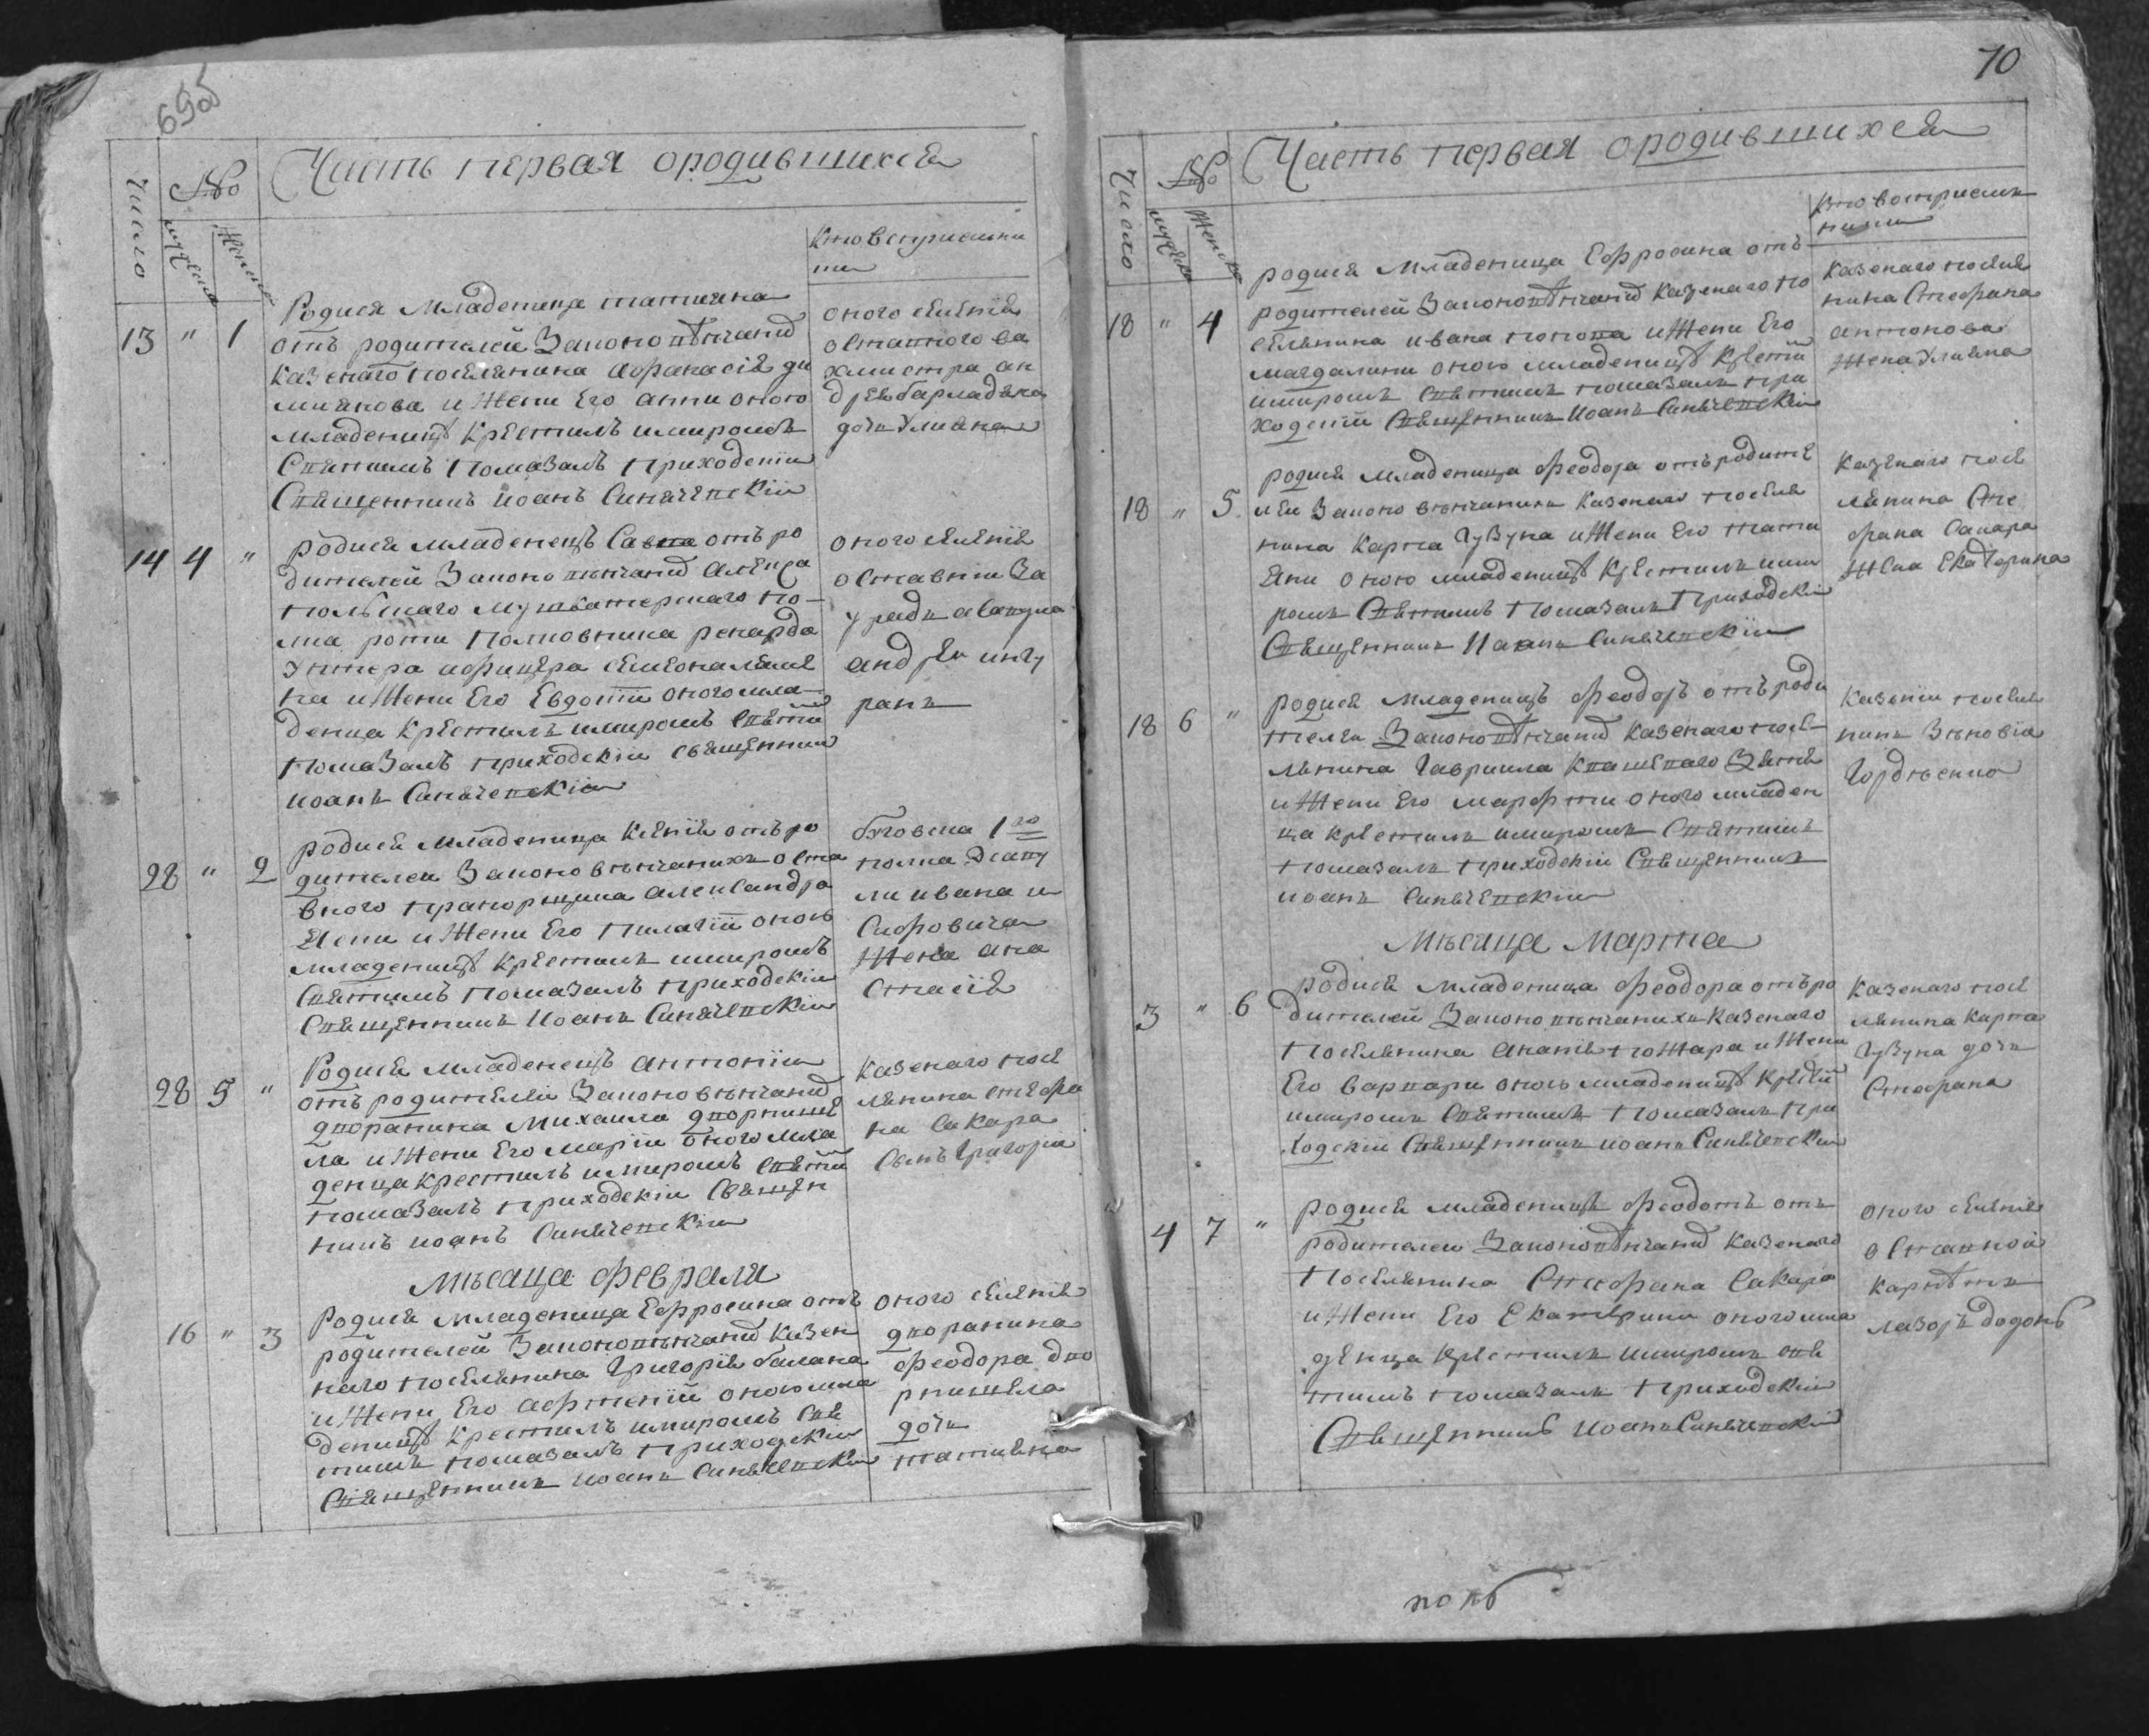 69об
Число
№
Часть первая ородившихся
мужеска
женска
кто восприемни
ки
13 " 1
Родися младеница татияна
отъ родителей законовѣнчаныхъ
казенаго поселянина афанасія ди
миянова и жени его анни оного
младеницѣ крестилъ имиромъ
святимъ помазалъ приходскій
священникъ иоанъ Синячевскій
оного селенія
оставного ва
хмистра ан
дрея барладяна
дочь улияна
14 4 "
родися младенецъ Савва отъ ро
дителей законовѣнчаныхъ
полскаго мушкатерскаго по
лка роти полковника рекарда
унтера афицера
на и жени его Евдотіи оного мла
денца крестилъ имиромъ святи
помазалъ приходскій священникъ
иоанъ Синячевскій
оного селенія
оставній За
андрей
ранъ
28 " 2
родися младеница Ксенія отъ ро
дителей законовѣнчанихъ оста
вного прапорщика александра
и жени его пилагіи оной
младеницѣ крестилъ имиромъ
святимъ помазалъ приходскій
священникъ иоанъ Синячевскій
буговска 1го
полка Эсаву
ли ивана и
Сифовича
жена ана
стасія
28 5 "
Родися младенецъ антоній
отъ родителей законовѣнчаныхъ
дворанина михаила дворнише
ла и жени его маріи оного мла
денца крестилъ имиромъ святи
помазалъ приходскій священ
никъ иоанъ Синячевскій
казенаго посе
лянина стефа
на Сакара
синъ григори
мѣсаца февраля
16 " 3
Родися младеница Ефросина отъ
родителей законовѣнчаныхъ казен
наго поселянина григорія балана
и жени его афтеніи оного мла
деницѣ крестилъ имиромъ свя
тимъ помазалъ приходскій
священникъ иоанъ Синячевскій
оного селенія
дворанина
феодора дво
рнишела
дочь
татияна
70
Число
№
Часть первая ородившихся
мужеска
женска
кто восприемъ
ники
18 " 4
родися младеница Ефросина отъ
родителей законовѣнчаныхъ казенаго по
селянина ивана попова и жени его
магдалини оною младеницѣ крести
имиромъ святимъ помазалъ при
ходскій священникъ иоанъ Синячевскій
казенаго поселя
нина Стефана
антонова
жена улияна
18 " 5
родися младеница феодора отъ родите
лей законовѣнчанихъ казенаго поселя
нина карпа гузуна и жени его тати
яни оною младеницѣ крестилъ ими
ромъ святимъ помазалъ приходскій
священникъ Иоанъ Синячевскій
казенаго посе
лянина Сте
фана Сакара
жена Екатерина
18 6 "
родися младеницъ феодоръ отъ роди
телей законовѣнчаныхъ казенаго посе
лянина гавриила кташенаго зятя
и жени его марфти оного младен
ца крестилъ имиромъ святимъ
помазалъ приходскій священникъ
иоанъ Синячевскій
казеній поселя
нинъ зѣновіа
гордѣенко
мѣсаца марта
3 " 6
родися младеница феодора отъ ро
дителей законовѣнчанихъ казенаго
поселянина ананія пожара и жени
его варвари оной младеницѣ
имиромъ святимъ помазалъ при
ходскій священникъ иоанъ Синячевскій
казенаго посе
лянина карпа
гузуна дочь
Стефана
4 7 "
родися младеницъ феодотъ отъ
родителей законовѣнчаныхъ казенаго
поселянина Стефана Сакара
и жени его Екатерини оного мла
денца крестилъ имиромъ свя
тимъ помазалъ приходскій
священникъ иоанъ Синячевскій
оного селенія
оставной
карнѣтъ
лазоръ додонъ